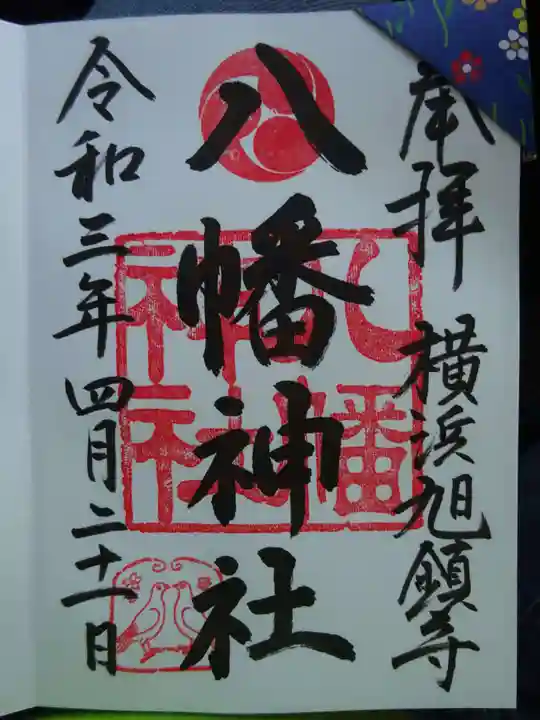 奉拝 横浜旭鎮守
八幡神社
八幡神社
令和三年四月二十一日